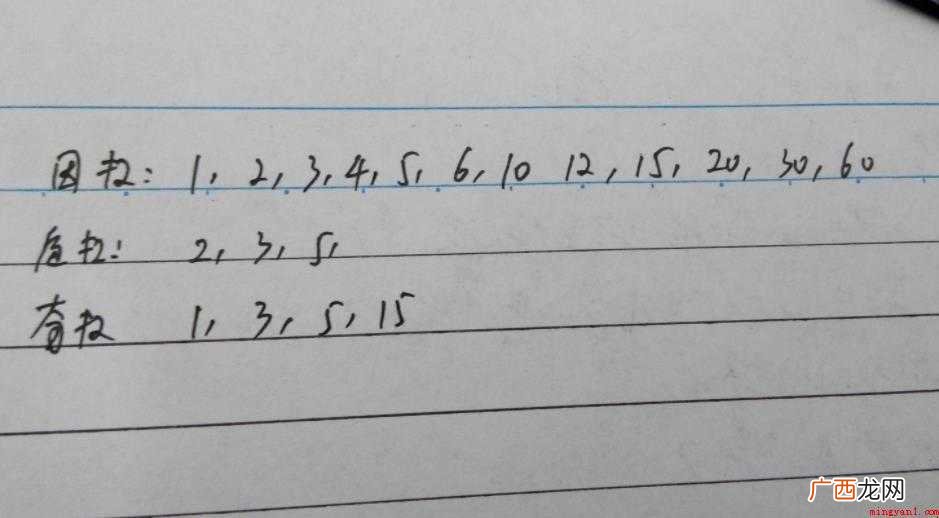 因数: 1, 2, 3, 4, 5, 6, 10 12, 15, 20, 30, 60
质数: 2, 3, 5,
奇数 1, 3, 5, 15
广西龙网
mingyan1.com